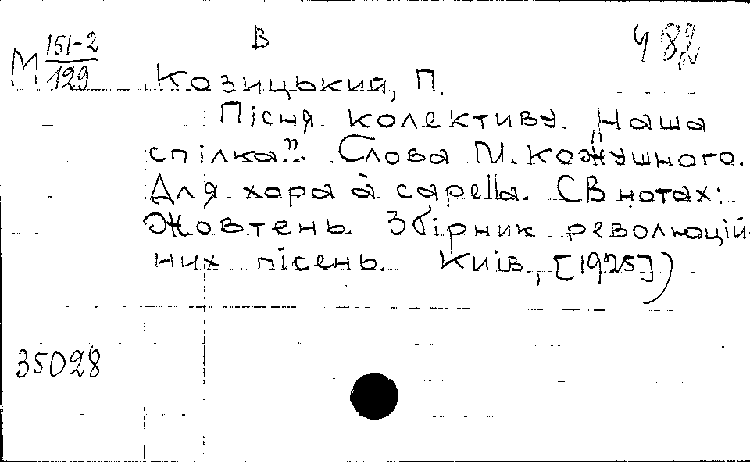 В 482
М 151-2
129
Козицький, П.
Пісня колективу. „Наша
спілка". Слова М. Кожушного.
Для хора à capella. (В нотах:
Жовтень. Збірник революцій-
них пісень. Київ, [1925])
35028